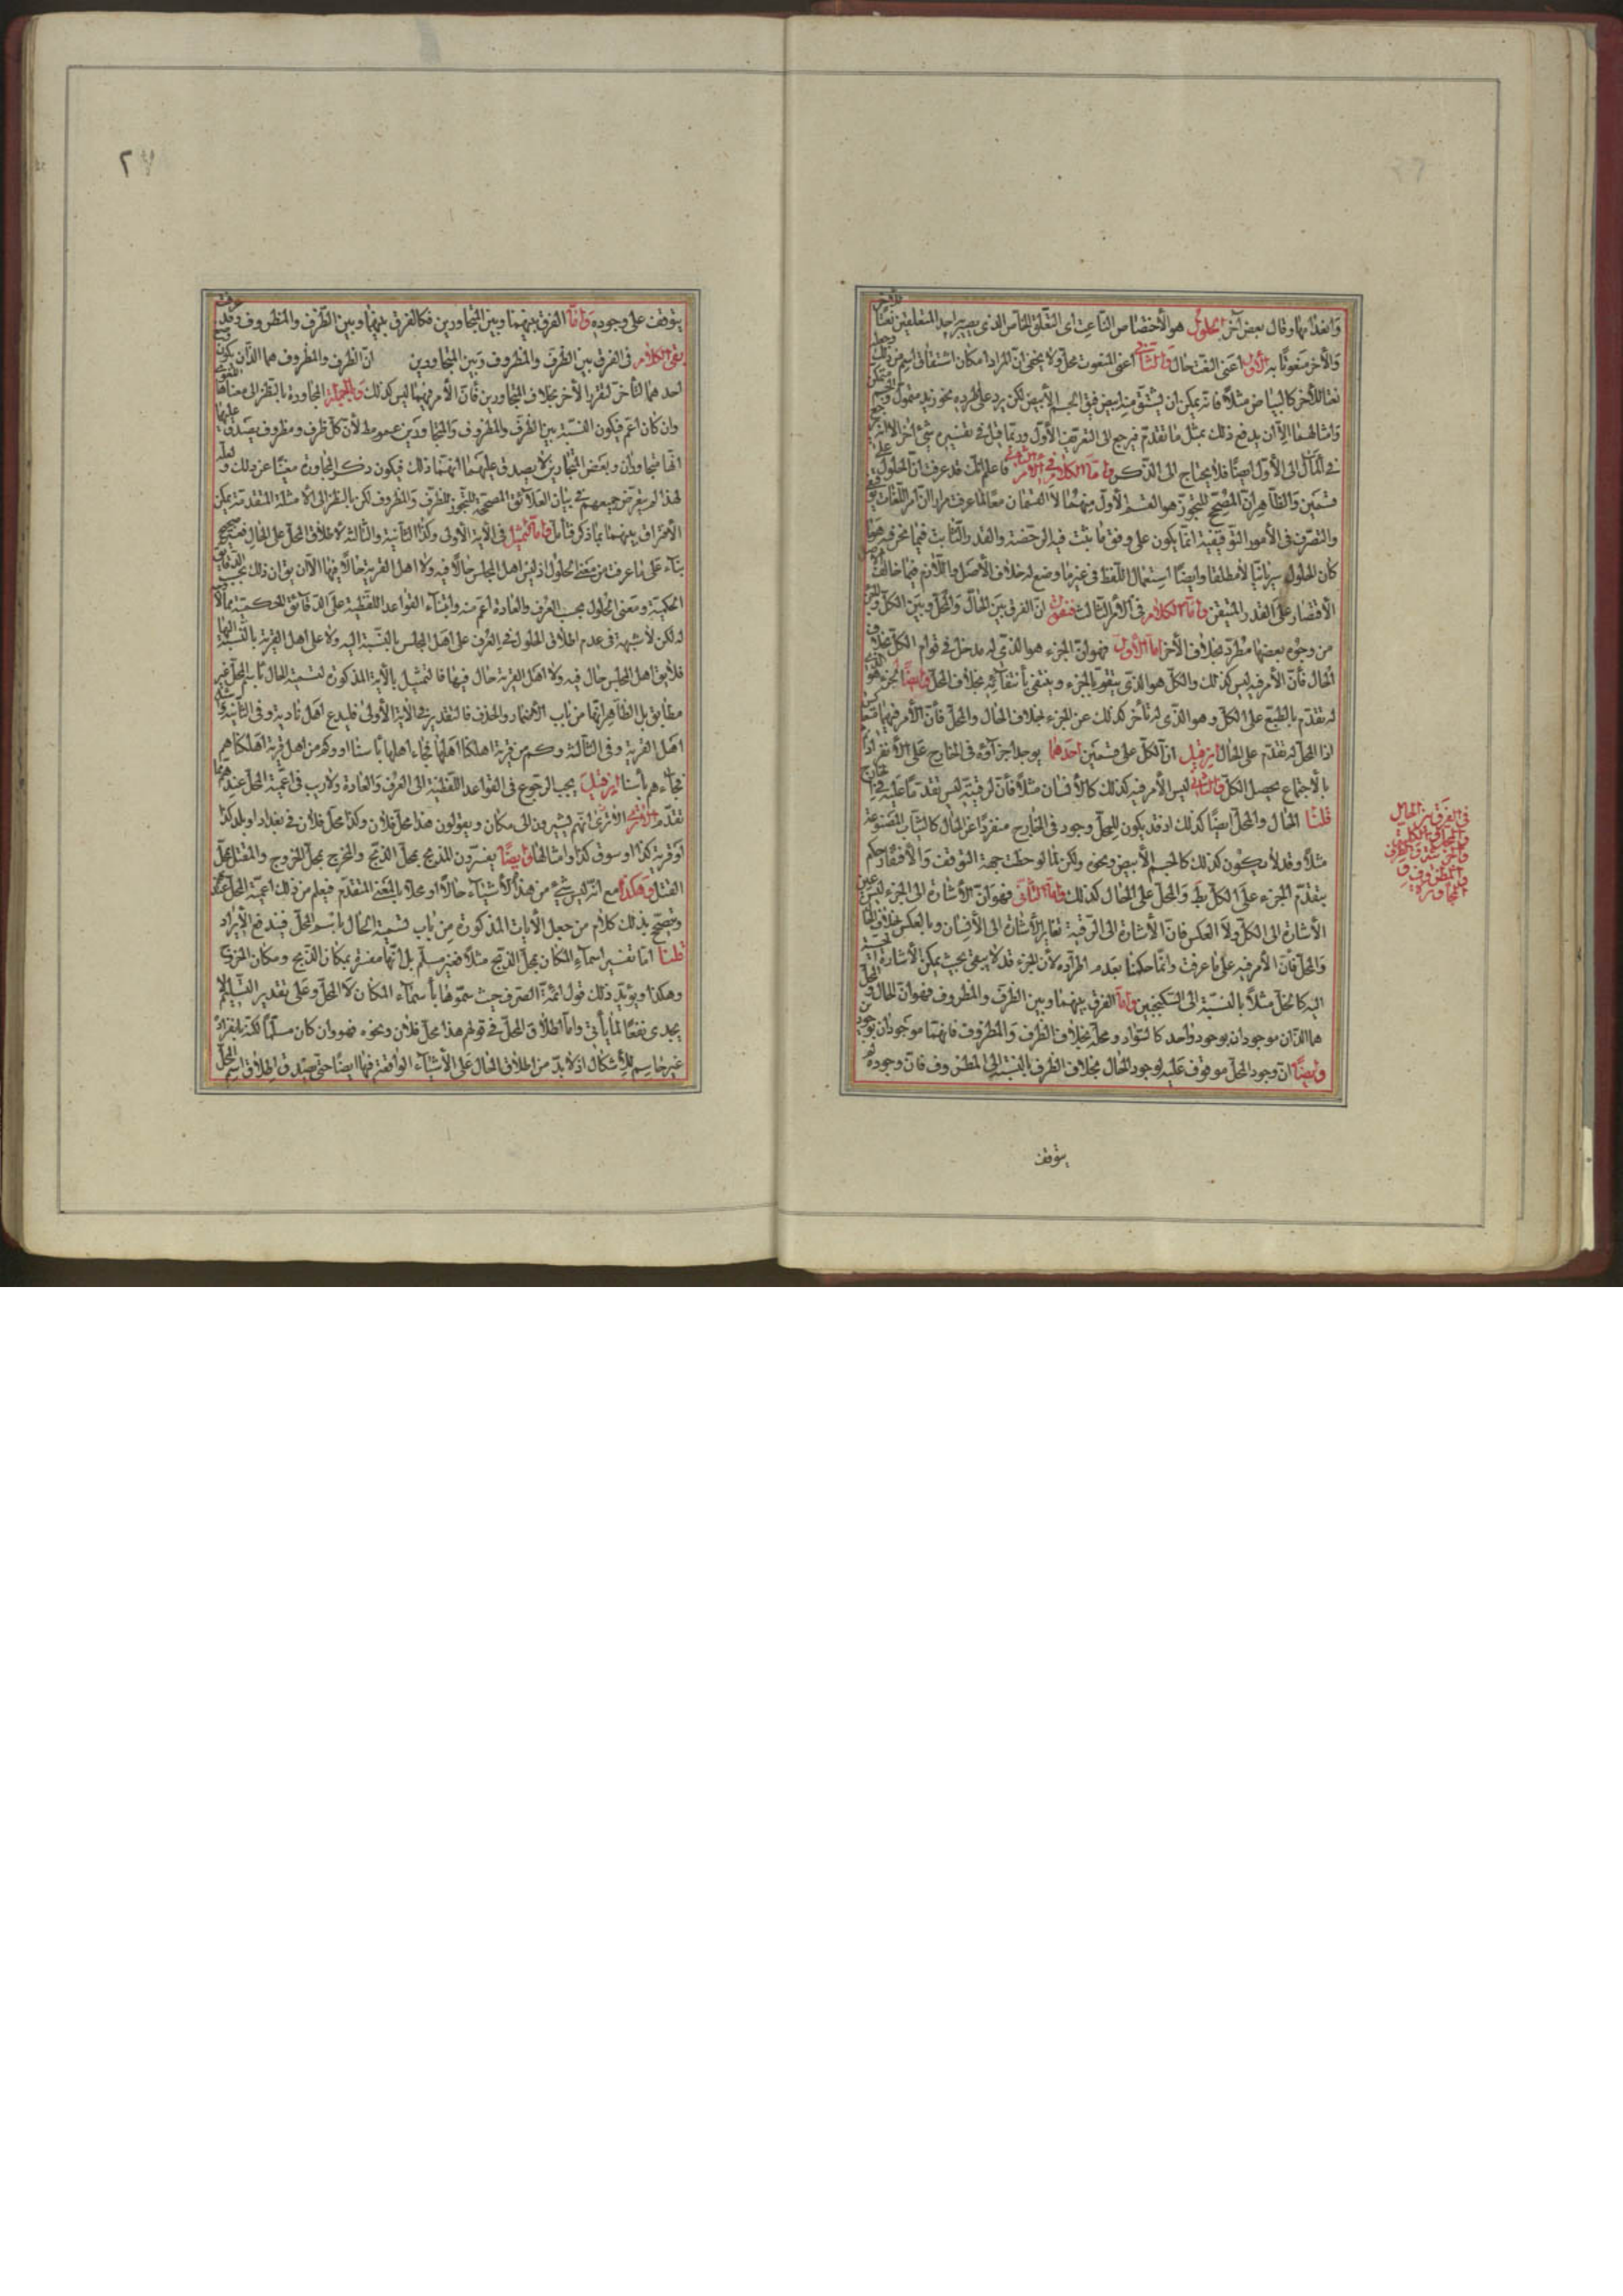 وانعدامها وقال بعض آخر الحلول هو الاختصاص الناعت اى التعلق الخاص الذى يصير احد المتعلقين نعتا
والآخر منعوتا به الاول اعنى النعت حال والثانى اعنى المنعوت محل ولا يخفى ان المراد امكان اشتقاق اسم من ذلك
نعتا للآخر كالبياض مثلا فانه يمكن ان يشتق منه ابيض فيق الجسم الابيض لكن يرد على طرده نحو زيد متمول
وامثالهما الا ان يدفع ذلك بمثل ما تقدم فيرجع الى التعريف الاول وربما قيل فى تفسيره شئ آخر الا انه
فى المآل الى الاول ايضا فلا يحتاج الى الذكر واما الكلام فى الامر الثانى فاعلم انك قد عرفت ان الحلول على
قسمين والظاهر ان المصحح للتجوز هو القسم الاول منهما لا القسمان معا لما عرفت مرارا ان امر اللغات
والتصرف فى الامور التوقيفية انما يكون على وفق ما ثبت فيه الرخصة والقدر الثابت فيما نحن فيه هو ما
كان الحلول سريانيا لا مطلقا وايضا استعمال اللفظ فى غير ما وضع له خلاف الاصل فاللازم فيما خالف
الاقتصار على القدر المتيقن واما الكلام فى الامر الثالث فنقول ان الفرق بين الحال والمحل وبين الكل والجزء
من وجوه بعضها مطرد بخلاف الآخر اما الاول فهو ان الجزء هو الذى له مدخل فى قوام الكل بخلاف
الحال فان الامر فيه ليس كذلك والكل هو الذى يتقوم بالجزء وينتفى بانتفائه بخلاف المحل وايضا الجزء هو الذى
له تقدم بالطبع على الكل وهو الذى له تأخر كذلك عن الجزء بخلاف الحال والمحل فان الامر فيهما
اذا المحل له تقدم على الحال ان قيل ان الكل على قسمين احدهما يوجد اجزاؤه فى الخارج على الانفراد
بالاجتماع يحصل الكل والثانى ليس الامر فيه كذلك كالانسان مثلا فان لرقبته ليس تقدما عليه فى الخارج
قلنا الحال والمحل ايضا كذلك اذ قد يكون للمحل وجود فى الخارج منفردا عن الحال كالثياب المصبوغة
مثلا وقد لا يكون كذلك كالجسم الابيض ونحوه ولكن لما لوحظت جهة التوقف والافتقار حكم
بتقدم الجزء على الكل والمحل على الحال كذلك واما الثانى فهو ان الاشارة الى الجزء ليس عين
الاشارة الى الكل ولا العكس فان الاشارة الى الرقبة تغاير الاشارة الى الانسان وبالعكس بخلاف الحال
والمحل فان الامر فيه على ما عرفت وانما حكمنا بعدم اطراده لان الجزء قد لا يبقى بحيث يمكن الاشارة
اليه كالخل مثلا بالنسبة الى السكنجبين واما الفرق بينهما وبين الظرف والمظروف فهو ان الحال والمحل
هما اللذان موجودان بوجود واحد كالسواد ومحله بخلاف الظرف والمظروف فانهما موجودان بوجودين
وايضا ان وجود المحل موقوف عليه لوجود الحال بخلاف الظرف بالنسبة الى المظروف فان وجوده لم
يتوقف
فى الفرق بين الحال
والمحل وبين الكل
والجزء وبين الظرف
والمظروف وفى
المجاورة
٢٧
يتوقف على وجوده واما الفرق بينهما وبين المتجاورين فكالفرق بينهما وبين الظرف والمظروف وقد عرفت
بقى الكلام فى الفرق بين الظرف والمظروف وبين المتجاورين ان الظرف والمظروف هما اللذان يكون
احدهما لتأخر تقرر الآخر بخلاف المتجاورين فان الامر فيهما ليس كذلك وبالجملة المجاورة بالنظر الى معناها
وان كان اعم فيكون النسبة بين الظرف والمظروف والمتجاورين عموم ط لان كل ظرف ومظروف يصدق عليهما
انهما متجاوران وبعض المتجاورين لا يصدق عليهما انهما ذلك فيكون ذكر المجاورة مغنيا عن ذلك
لهذا لم يتعرض جميعهم فى بيان العلائق المصححة للتجوز للظرف والمظروف لكن بالنظر الى الامثلة المتقدمة يمكن
الافتراق بينهما بما ذكر فتأمل واما التمثيل فى الآية الاولى وكذا الثانية والثالثة لاطلاق المحل على الحال فغير صحيح
بناء على ما عرفت من معنى الحلول اذ ليس اهل المجلس حالا فيه ولا اهل القرية حالا فيها الا ان يق ان ذلك بحسب
الحكمية ومعنى الحلول بحسب العرف والعادة اعم منه وابتناء القواعد اللفظية على الدقائق الحكمية مما لا
له لكن لا شبهة فى عدم اطلاق الحلول فى العرف على اهل المجلس بالنسبة اليه ولا على اهل القرية بالنسبة اليها
فلا يق اهل المجلس حال فيه ولا اهل القرية حال فيها فالتمثيل بالآية المذكورة لتسمية الحال باسم المحل غير
مطابق بل الظاهر انها من باب الاضمار والحذف فالتقدير فى الآية الاولى فليدع اهل ناديه وفى الثانية
اهل القرية وفى الثالثة وكم من قرية اهلكنا اهلها فجاء اهلها بأسنا او وكم من اهل قرية اهلكناهم
فجاءهم بأسنا ان قيل يجب الرجوع فى القواعد اللفظية الى العرف والعادة ولا ريب فى اعمية المحل عندهم مما
تقدم الا ترى انهم يشيرون الى مكان ويقولون هذا محل فلان وكذا محل فلان فى بغداد او بلد كذا
او قرية كذا او سوق كذا وامثالها وايضا يفسرون المذبح بمحل الذبح والمخرج بمحل الخروج والمقتل بمحل
القتل وهكذا مع انه ليس شئ من هذه الاشياء حالا او محلا بالمعنى المتقدم فيعلم من ذلك اعمية المحل عندهم
ويصح بذلك كلام من جعل الآيات المذكورة من باب تسمية الحال باسم المحل فيندفع الايراد
قلنا اما تفسير اسماء المكان بمحل الذبح مثلا فغير مسلم بل انها مفسرة بمكان الذبح ومكان الخروج
وهكذا ويؤيد ذلك قول ائمة الصرف حيث سموها بأسماء المكان لا المحل وعلى تقدير التسليم لا
يجدى نفعا لما يأتى واما اطلاق المحل فى قولهم هذا محل فلان ونحوه فهو وان كان مسلما لكنه بانفراده
غير حاسم للاشكال اذ لا بد من اطلاق الحال على الاشياء الواقعة فيها ايضا حتى يصدق اطلاق اسم المحل